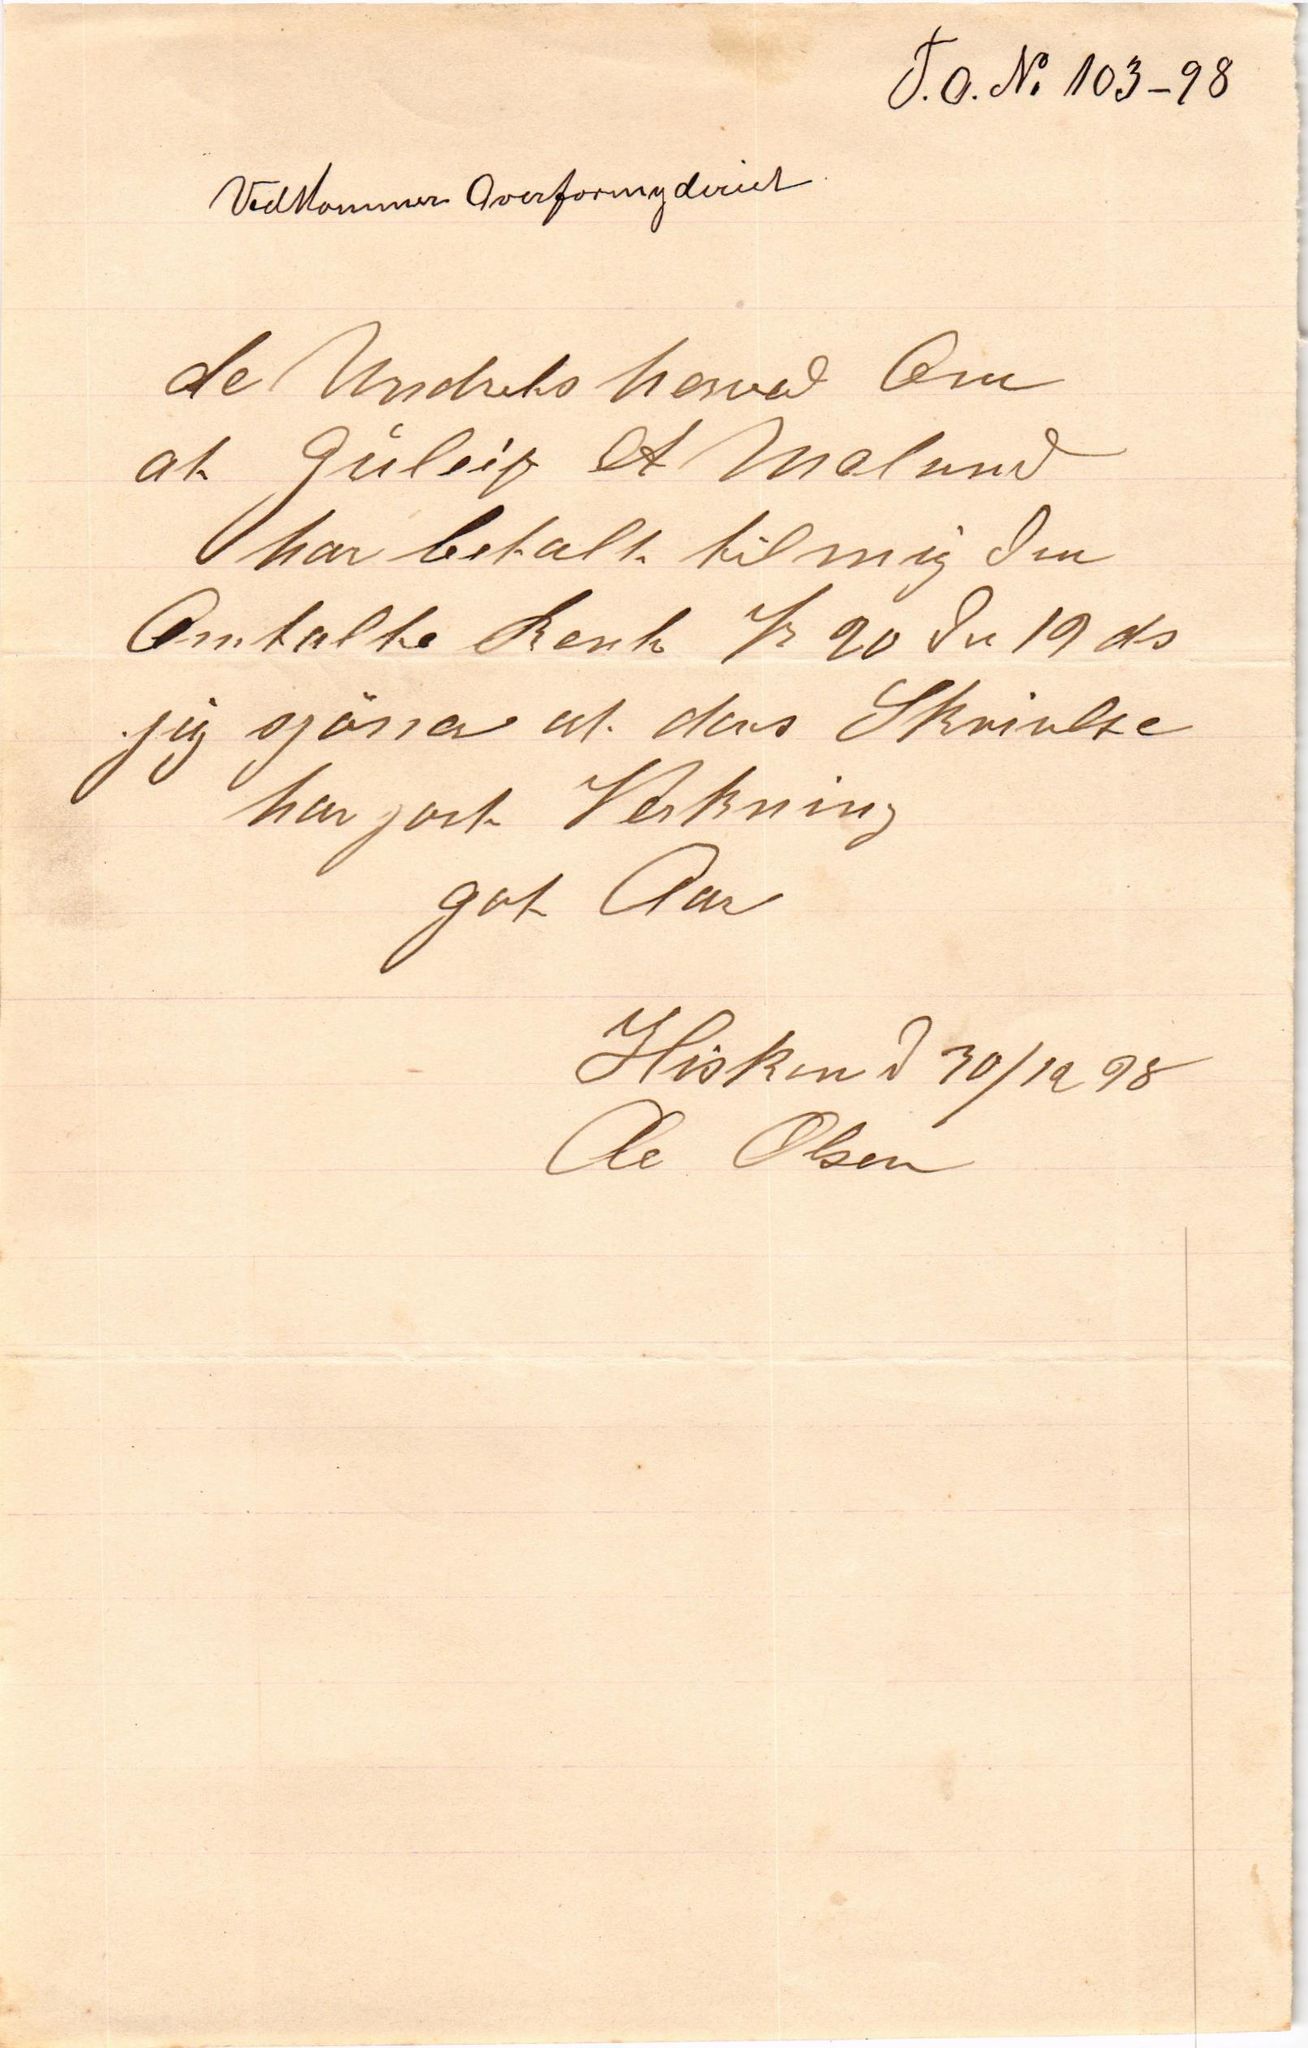 J.O. No 103-98
Vedkommer Overformyderiet
de Undrets herved Om
at Guleip A Melund
har betalt til mig den
Omtalte Rente Kr 20 den 19 ds
jig sjönner at ders Skrivelse
har jort Verkning
got Aar
Hisken d 30/12 98
Ole Olsen